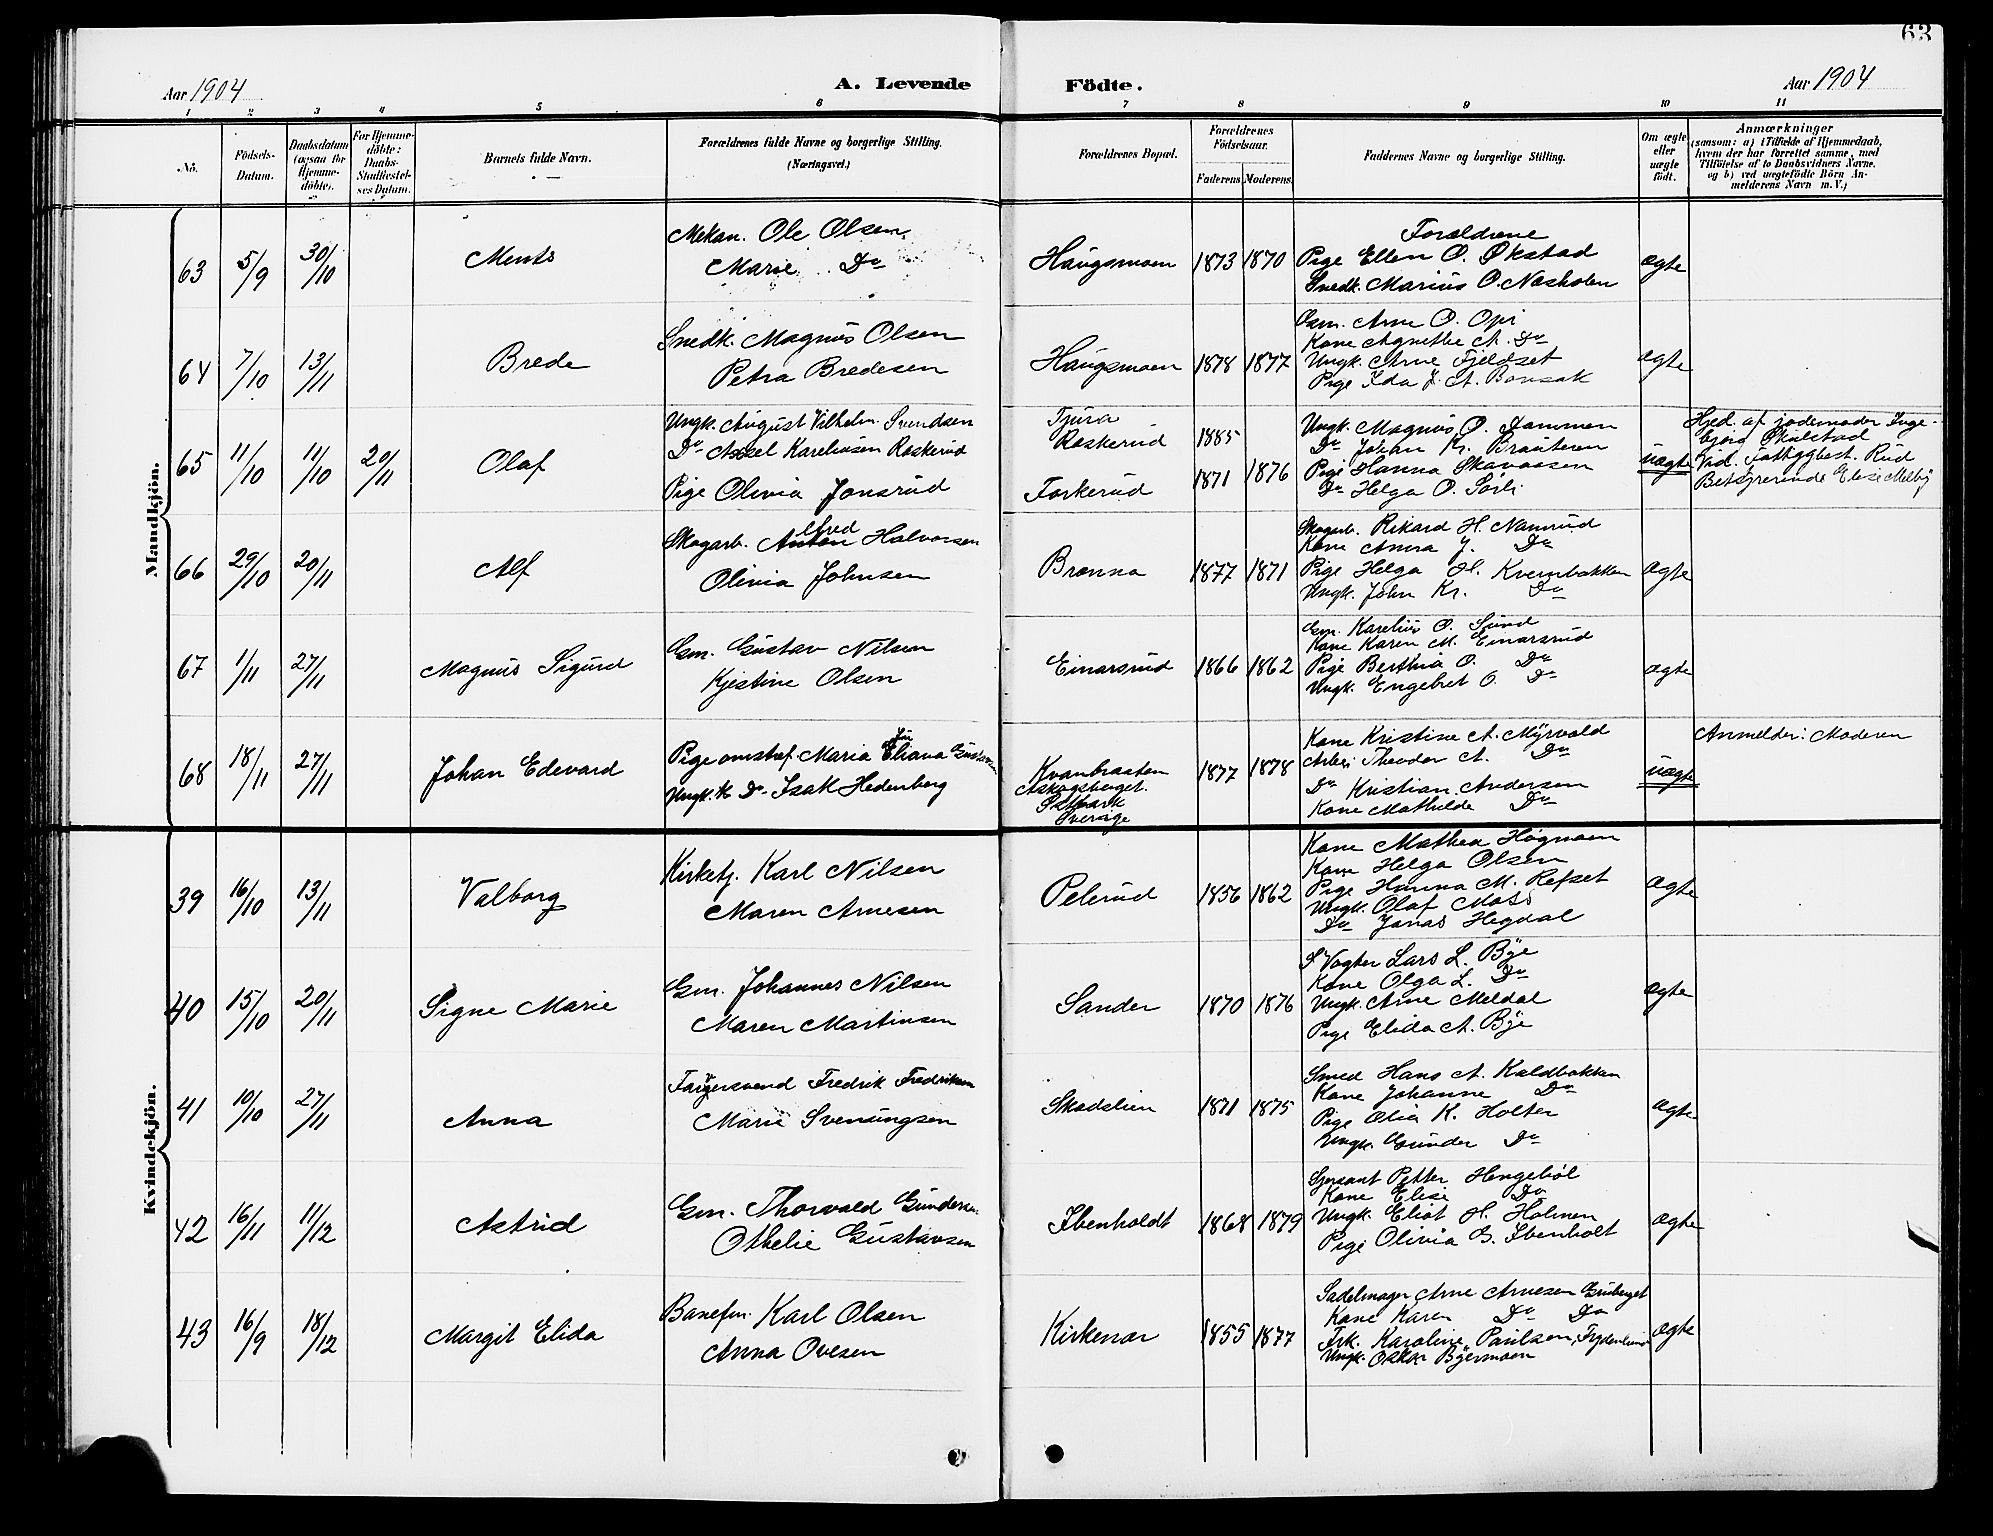 63
Aar 1904
A. Levende Födte.
Aar 1904
1 2 3 4 5 6 7 8 9 10 11
No.
Födsels-Datum.
Daabsdatum (ogsaa for Hjemmedöbte).
For Hjemmedöbte: Daabs-Stadfæstelses Datum.
Barnets fulde Navn.
Forældrenes fulde Navne og borgerlige Stilling. (Næringsvei.)
Forældrenes Bopæl.
Forældrenes Födselsaar.
Faderens. Moderens.
Faddernes Navne og borgerlige Stilling.
Om ægte eller uægte födt.
Anmærkninger
(saasom: a) i Tilfælde af Hjemmedaab, hvem der har forrettet samme, med Tilföielse af to Daabsvidners Navne. og b) ved uægtefödte Börn Anmelderens Navn m. V.)
Mandkjön.
63 5/9 30/10 Ments
Mekan. Ole Olsen
Marie Do
Haugsmoen 1873 1870
Forældrene
Pige Ellen O. Økstad
Snedk. Marius O. Næsholen
ægte
64 7/10 13/11 Brede
Snedk. Magnus Olsen
Petra Bredesen
Haugsmoen 1878 1877
Gsm. Arne O. Opi
Kone Agnethe A. Do
Ungk. Arne Fjeldset
Pige Ida J. A. Bonsak
ægte
65 11/10 11/10 20/11 Olaf
Ungk. August Vilhelm Svendsen
Do Axel Kareliusen Raskerud
Pige Olivia Jonsrud
Tjura
Raskerud
Forkerud
1885
1871 1876
Ungk. Magnus O. Dammen
Do Johan Kr. Bråuteren
Pige Hanna Skavaasen
Do Helga O. Sorli
uægte
Hjed. af jodemoder Ingebjörg Økilstad
Vid. Fattiggbest. Rud
Bestyrerinde Elise Melby
66 29/10 20/11 Alf
Skogarb. Anton Alfred Halvorsen
Olivia Johnsen
Brænna 1877 1871
Skogarb. Rikard H. Namrud
Kone Anna J. Do
Pige Helga H. Kvernbakken
Ungk. John Kr. Do
ægte
67 1/11 27/11 Magnus Sigurd
Gm. Gustav Nilsen
Kjestine Olsen
Einarsrud 1866 1862
Gm. Karelius O. Sund
Kone Karen M. Einarsrud
Pige Berthia O. Do
Ungk. Engebret O. Do
ægte
68 18/11 27/11 Johan Edevard
Pige omstref. Maria Eliana Gustavsen
Ungk. & Do Isak Hedenberg
Kvanbraaten
Askogsberget.
Sverige
1877 1878
Kone Kristine A. Myrvold
Arbei. Theodor A. Do
Do Kristian Andersen
Kone Mathilde Do
uægte
Anmelder: Moderen
Kvindekjön.
39 16/10 13/11 Valborg
Kirketj. Karl Nilsen
Maren Arnesen
Pelerud 1856 1862
Kone Mathea Högmoen
Kone Helga Olsen
Pige Hanna M. Refset
Ungk. Olaf Moss
Do Jonas Hegdal
ægte
40 15/10 20/11 Signe Marie
Gm. Johannes Nilsen
Maren Martinsen
Sander 1870 1876
S Vogter Lars L. Bye
Kone Olga L. Do
Ungk. Arne Meldal
Pige Elida A. Bye
ægte
41 10/10 27/11 Anna
Farversvend Fredrik Fredriksen
Marie Svenungsen
Skadslien 1871 1875
Smed Hans A. Kaldbakken
Kone Johanne Do
Pige Olia K. Holter
Ungk. Gunder Do
ægte
42 16/11 11/12 Astrid
Gm. Thorvald Gundersen
Othelie Gustavsen
Ibenholdt 1868 1879
Sjersant Petter Hengeböl
Kone Elise Do
Ungk. Eliot H. Holmen
Pige Olivia G. Ibenholt
ægte
43 16/9 18/12 Margit Elida
Banefm. Karl Olsen
Anna Ovesen
Kirkenær 1855 1877
Sadelmager Arne Arnesen Gruberget
Kone Karen Do Do
Frk. Karoline Paulsen, Frydenlund
Ungk. Oskar Byermoen
ægte